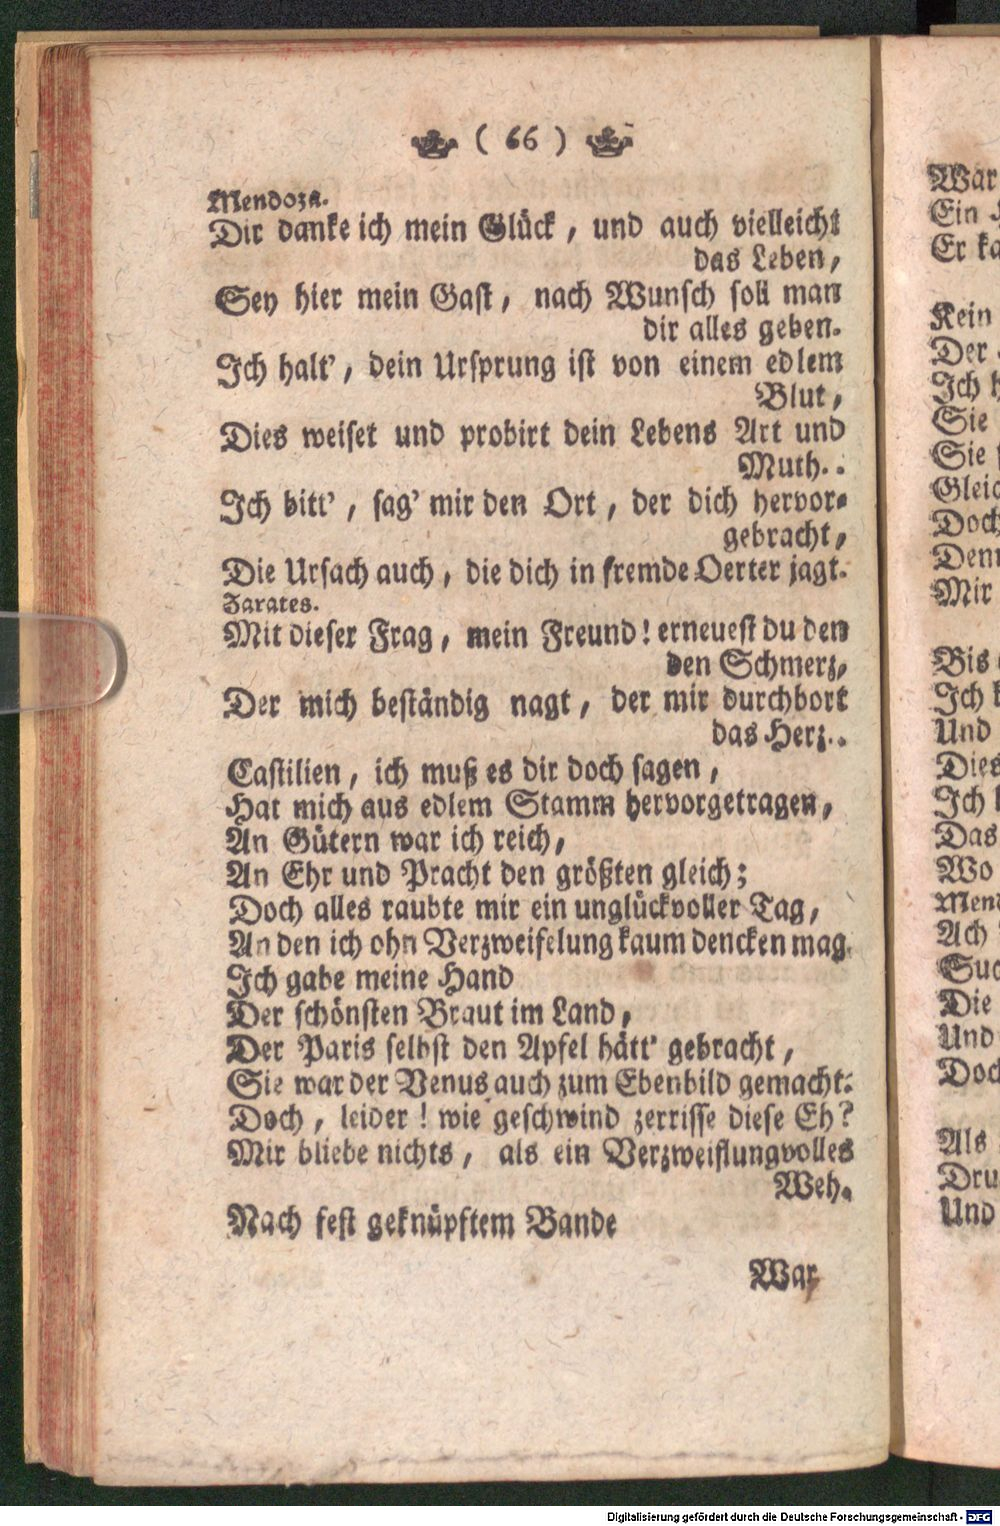 ( 66 )
Mendoza.
Dir danke ich mein Glück, und auch vielleicht
das Leben,
Sey hier mein Gast, nach Wunsch soll man
dir alles geben.
Ich halt', dein Ursprung ist von einem edlem
Blut,
Dies weiset und probirt dein Lebens Art und
Muth..
Ich bitt', sag' mir den Ort, der dich hervor-
gebracht,
Die Ursach auch, die dich in fremde Oerter jagt.
Zarates.
Mit dieser Frag, mein Freund! erneuest du den
den Schmerz,
Der mich beständig nagt, der mir durchbort
das Herz..
Castilien, ich muß es dir doch sagen,
Hat mich aus edlem Stamm hervorgetragen,
An Gütern war ich reich,
An Ehr und Pracht den größten gleich;
Doch alles raubte mir ein unglückvoller Tag,
An den ich ohn Verzweifelung kaum dencken mag.
Ich gabe meine Hand
Der schönsten Braut im Land,
Der Paris selbst den Apfel hätt' gebracht,
Sie war der Venus auch zum Ebenbild gemacht:
Doch, leider! wie geschwind zerrisse diese Eh?
Mir bliebe nichts, als ein Verzweiflungvolles
Weh.
Nach fest geknüpftem Bande
War
War
Ein
Er
Kein
Der
Ich
Sie
Sie
Gleic
Doch
Denn
Mir
Bis
Ich
Und
Dies
Ich
Das
Wo
Mend
Ach
Suc
Die
Und
Doch
Als
Dru
Und
Digitalisierung gefördert durch die Deutsche Forschungsgemeinschaft - DFG